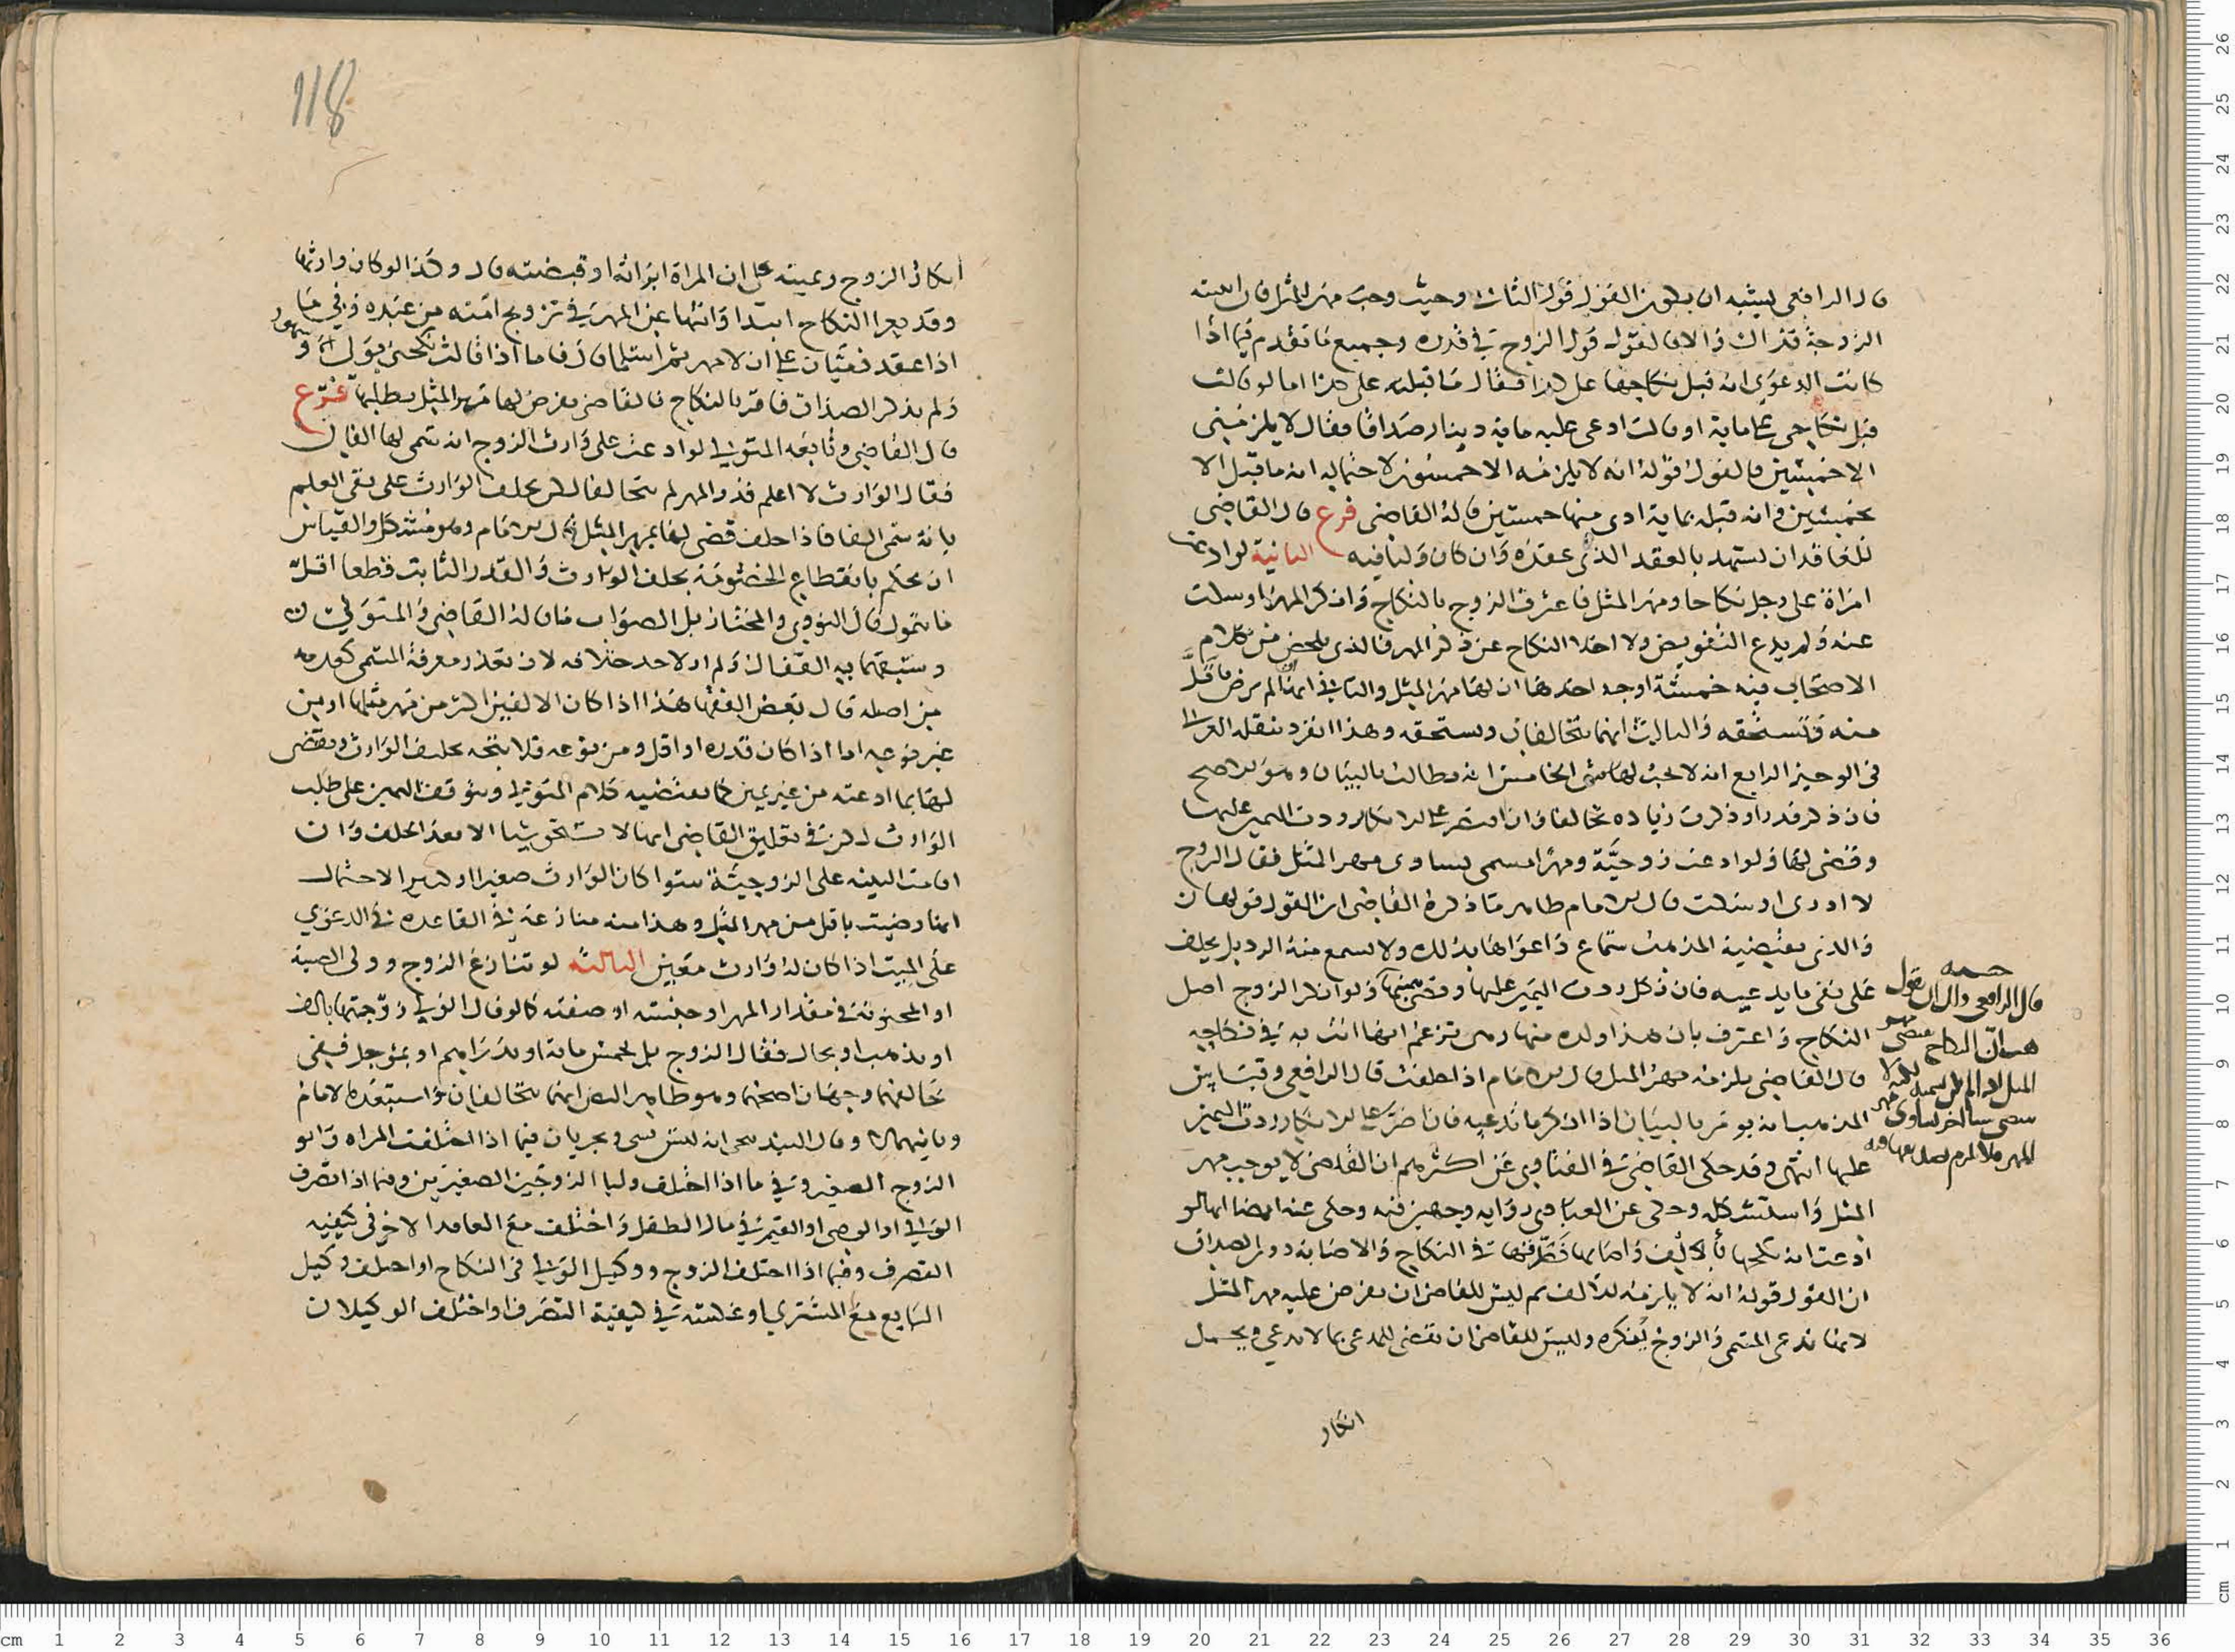 قال الرافعي يشبه ان يكون القول قول الثاني وحيث وجب مهر المثل فان
الزوجة قد والا فالقول قول الزوج في قدره وجميع ما تقدم فيما اذا
كانت الدعوى انه قبل نكاحها على هذا فقال ما قبلته على هذا اما لو قالت
قبل نكاحي على ماية او قالت ادعى عليه ماية دينار صداقا فقال لا يلزمني
الا خمسين فالقول قوله انه لا يلزمه الا خمسون لاحتمال انه ما قبل الا
بخمسين وانه قبله بماية ادى منها خمسين قاله القاضي فرع قال القاضي
للعاقد ان يشهد بالعقد الذي عقده وان كان وليا فيه الثانية لو ادعت
امراة على رجل نكاحا ومهر المثل فاعترف الزوج بالنكاح وانكر المهر او سكت
عنه ولم يدع التفويض ولا اخلا النكاح عن ذكر المهر فالذي يلخص من كلام
الاصحاب فيه خمسة اوجه احدها ان لها مهر المثل والثاني انه ان لم يرض ما قل
منه وتستحقه والثالث انهما يتحالفان وتستحقه وهذا انفرد بنقله الغزالي
في الوجيز الرابع انه لا يجب لها شي الخامس انه يطالب بالبيان وهو الاصح
فان ذكر قدرا وذكرت زيادة تحالفا وان اصر على الانكار ردت اليمين عليها
وقضى لها ولو ادعت زوجية ومهرا مسمى يساوي مهر المثل فقال الزوج
لا ادري او سكت قال الامام ظاهر ما ذكره القاضي ان القول قولها قال
والذي يقتضيه المذهب سماع دعواها بذلك ولا يسمع منه الرد بل يحلف
على نفي ما يدعيه فان نكل ردت اليمين عليها وقضى بيمينها ولو انكر الزوج اصل
النكاح واعترف بان هذا ولده منها وهي تزعم انها اتت به في نكاحه
قال القاضي يلزمه مهر المثل قال الامام اذا حلفت قال الرافعي وقياس
المذهب انه يومر بالبيان اذا انكر ما تدعيه فان اصر على الانكار ردت اليمين
عليها انتهى وقد حكى القاضي في الفتاوي عن اكثرهم ان القاضي لا يوجب مهر
المثل واستشكله وحكى عن العبادي رواية وجهين فيه وحكى عنه ايضا انها لو
ادعت انه نكحها بالف واصابها فصدقها في النكاح والاصابة دون الصداق
ان القول قوله انه لا يلزمه الالف ثم ليس للقاضي ان يفرض عليه مهر المثل
لانها تدعي المسمى والزوج ينكره وليس للقاضي ان يقضي للمدعي بما لا يدعي ويحتمل
انكار
قال الرافعي
المهر
118
انكار الزوج ويمينه على ان المراة ابراته او قبضته قال وكذا لو كان وارثها
وقد يعرا النكاح ابتداء وانتهاء عن المهر في تزويج امته من عبده وفي ما
اذا عقد ذميان على ان لا مهر ثم اسلما قال فاما اذا قالت نكحني بولي وشهود
ولم يذكر الصداق فاقر بالنكاح فالقاضي يفرض لها مهر المثل بطلبها فرع
قال القاضي وتابعه المتولي لو ادعت على وارث الزوج انه سمى لها الفا
فقال الوارث لا اعلم قدر المهر لم يتحالفا لكن يحلف الوارث على نفي العلم
بانه سمى الفا فاذا حلف قضى لها بمهر المثل قال الامام وهو مشكل والقياس
ان يحكم بانقطاع الخصومة بحلف الوارث والقدر الثابت قطعا اقل
ما يتمول قال النووي والمختار بل الصواب ما قاله القاضي والمتولي
وسبقهما به القفال ولم ار لاحد خلافه لان تعذر معرفة المسمى كعدمه
من اصله قال بعض الفقها هذا اذا كان الالفين اكثر من مهر مثلها او من
غير نوعه اما اذا كان قدره او اقل ومن نوعه فلا يتجه تحليف الوارث ويقضى
لها بما ادعته من غير يمين كما يقتضيه كلام المتولي ويتوقف اليمين على طلب
الوارث لكن في تعليق القاضي انها لا تستحق شيا الا بعد الحلف وان
اقامت البينة على الزوجية سوا كان الوارث صغيرا او كبيرا لاحتمال
انها رضيت باقل من مهر المثل وهذا منه منازعة في القاعدة في الدعوى
على الميت اذا كان له وارث معين الثالثة لو تنازع الزوج وولي الصبية
او المجنونة في مقدار المهر او جنسه او صفته كما لو قال الولي زوجتها بالف
او بذهب او بحال فقال الزوج بل بخمس ماية او بدراهم او بمؤجل ففي
تحالفهما وجهان اصحهما وهو ظاهر النص انهما يتحالفان واستبعده الامام
وثانيهما لا وقال البندنيجي انه ليس بشي ويجريان فيما اذا اختلفت المراة وابو
الزوج الصغير وفي ما اذا اختلف وليا الزوجين الصغيرين وفيما اذا تصرف
الولي او الوصي او القيم في مال الطفل واختلف مع العاقد الاخر في كيفية
التصرف وفيما اذا اختلف الزوج ووكيل الولي في النكاح او اختلف وكيل
البايع مع المشتري او عكسه في كيفية التصرف او اختلف الوكيلان